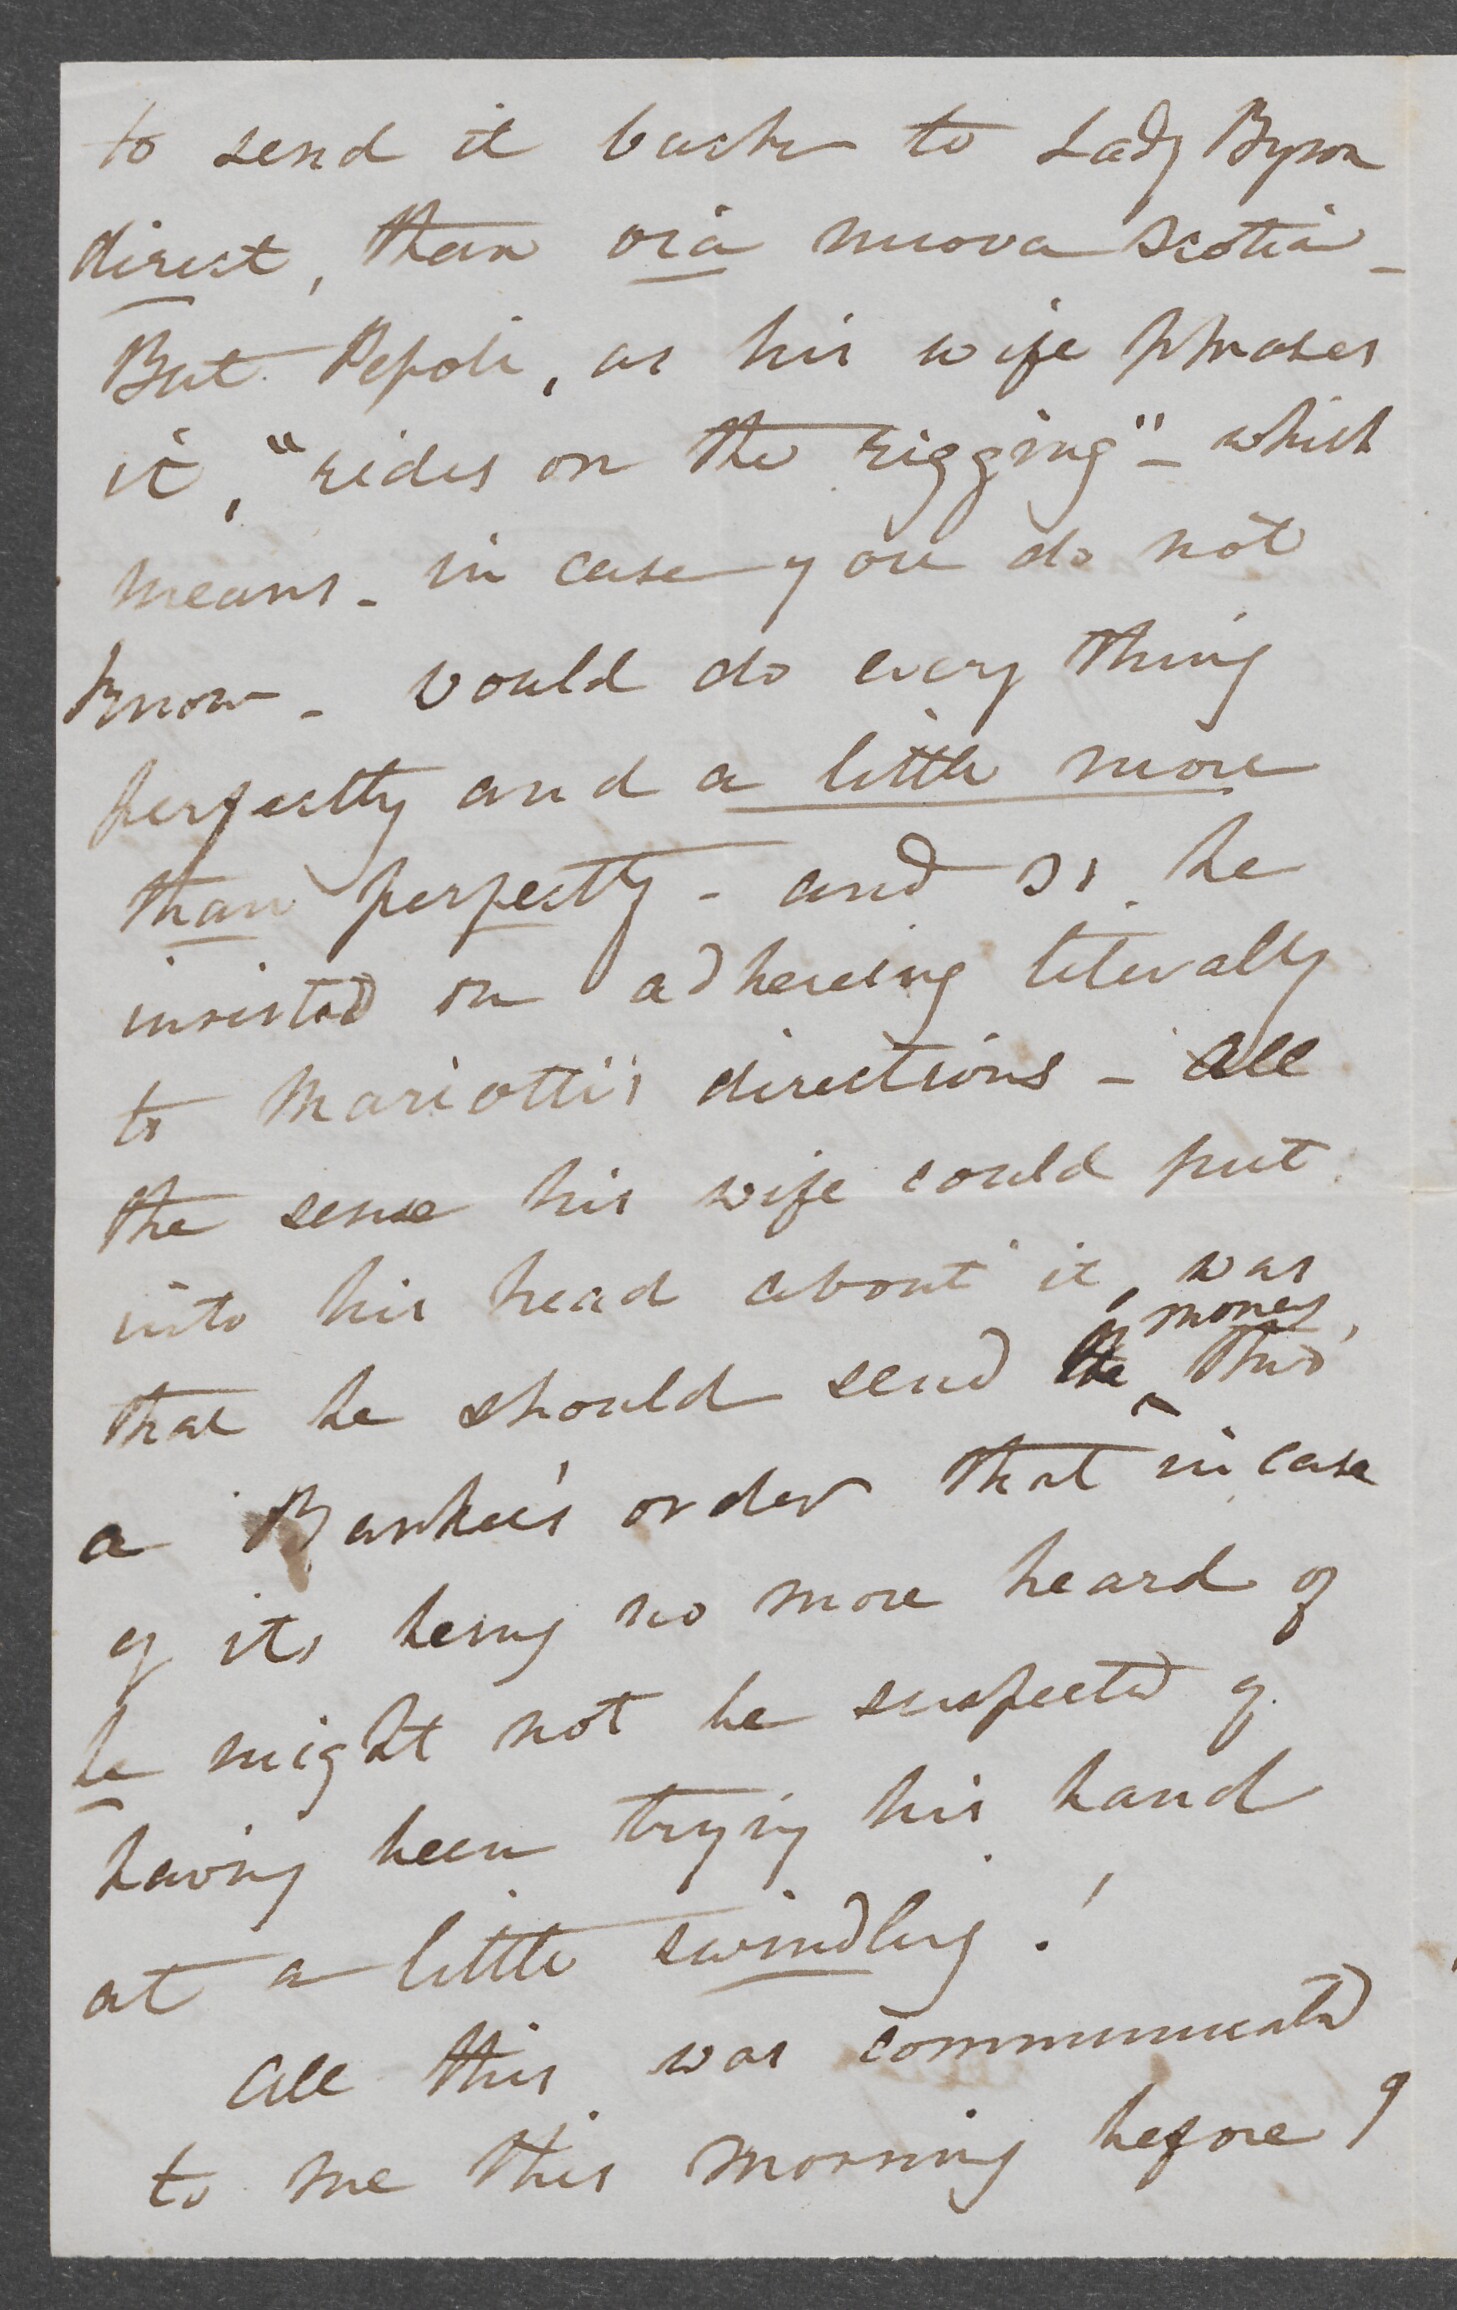 to send it back to Lady Byron
direct, than via nuova Scotia –
But Pepoli, as his wife phrases
it, "rides on the rigging" – which
means – in case you do not
know – would do every thing
perfectly and a little more
than perfectly – and so he
insisted on adhereing literally
to Mariotti's directions – all
the sense his wife could put
into his head about it, was
that he should send the money, thro'
a Banker's order that in case
of its being no more heard of
he might not be suspected of
having been trying his hand
at a little swindling!
All this was communicated
to me this morning before 9